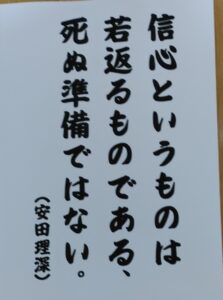 信心というものは
若返るものである、
死ぬ準備ではない。
(安田理深)